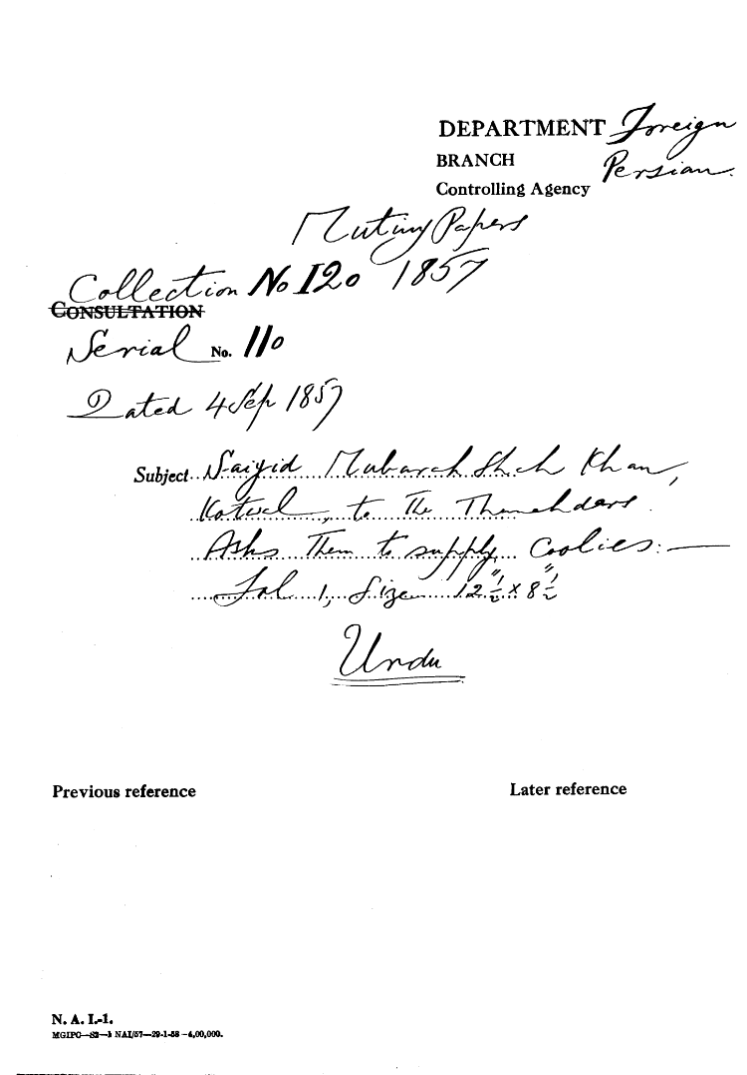 DEPARTMENT Foreign
BRANCH Persian.
Controlling Agency
Mutiny Papers
Collection No 120 1857
CONSULTATION
Serial No. 110
Dated 4 Sep 1857
Subject Saiyid Mubarak Shah Khan,
Kotwal, to the Thanahdars.
Asks them to supply Coolies:—
Fol 1, Size 12"½ x 8"½
Urdu
Previous reference
Later reference
N. A. I.-1.
MGIPC—S2—3 NAI/57—29-1-58—4,00,000.